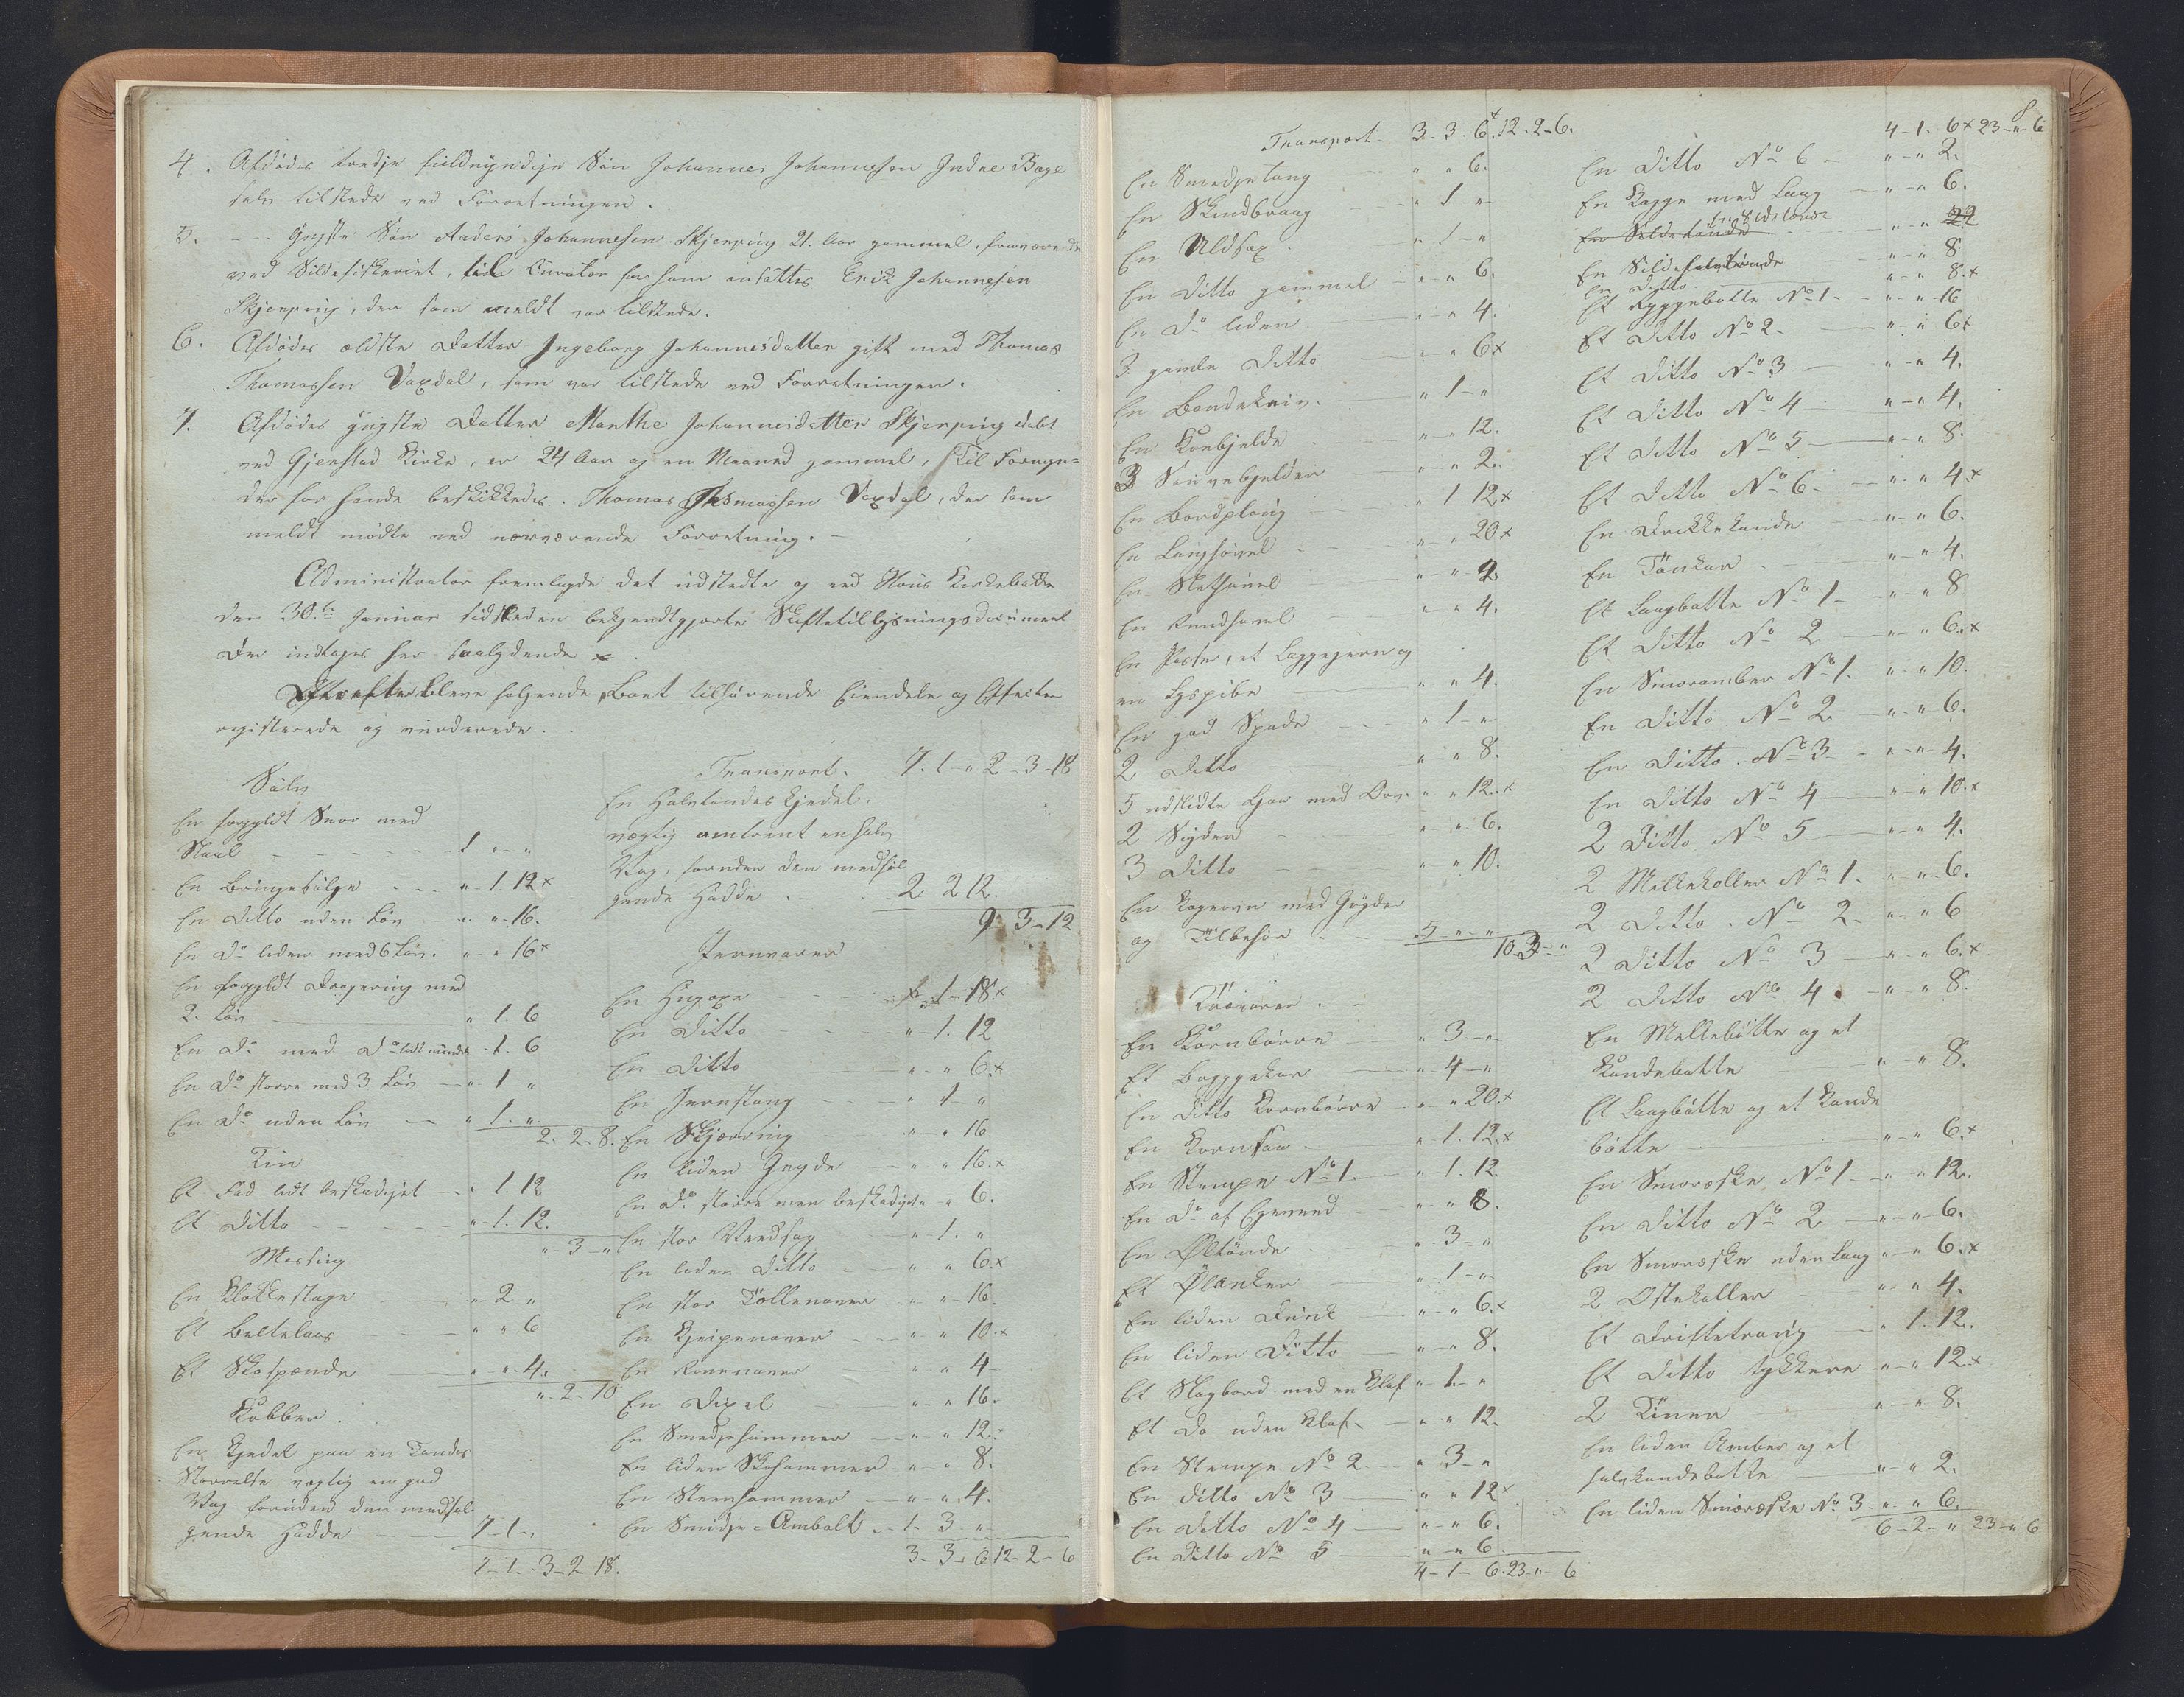 4. Afdødes tredje fuldmyndige Søn Johannes Johannesen Indre Boge
selv tilstede ved Forretningen.
5. - - Yngste Søn Anders Johannesen Skjerping 21. Aar gammel, fraværende
ved Sildefiskeriet, til Curator for ham ansattes Erik Johannesen
Skjerping, der som meldt var tilstede.
6. Afdødes ældste Datter Ingeborg Johannesdatter gift med Thomas
Thomassen Vaxdal, som var tilstede ved Forretningen.
7. Afdødes yngste Datter Marthe Johannesdatter Skjerping døbt
ved Gjerstad Kirke, er 24 Aar og en Maaned gammel, Til Formyn=
der for hende beskikkedes Thomas Thomassen Vaxdal, der som
meldt mødte ved nærværende Forretning. -
Administrator fremlagde det udstedte og ved Hous Kirkebakke
den 30te Januar sidstleden bekjendtgjorte Skiftetillysningsdocument
Der indtages her saalydende x
Derefter bleve følgende Boet tilhørende Eiendele og Effecter
registrerede og vurderede.
Sølv
En forgyldt Snor med
Naal - 1 " - "
En Bringesølge - " - 1. 12 x
En Ditto uden Løv " - " - 16.
En Do liden med 6 Løv. " - " 16 x
En forgyldt Dragering med
2. Løv " 1 6
En Do med Do lidt mindre - 1. 6
En Do større med 3 Løv - " 1 "
En Do uden Løv - " 1. "
2. 2 - 8.
Tin
Et Fad lidt beskadiget - " 1. 12
Et Ditto - " - 1. 12.
" - 3 - "
Messing
En Klokkestage " - 2 "
Et Beltelaas " " 6
Et Skospænde " " - 4.
" - 2 - 10
Kobber.
En Kjedel paa en Tøndes
Størrelse vægtig en god
Vog foruden den medføl-
gende Hadde 7 - 1 - "
7 - 1 - " 3 - 2 18.
Transport. 7. 1 - " 2 - 3 - 18
En Halvtøndes Kjedel.
vægtig omtrent en halv
Vog, foruden den medføl
gende Hadde 2 2 12.
9 - 3 - 12
Jernvarer
En Hugøxe - 1 - 18 x
En Ditto " - 1. 12
En Ditto " - " 6 x
En Jernstang " 1 - "
En Skjæreing " - " 16
En liden Gryde " " 16 x
En Do større men beskadiget " " 6.
En stor Vendsag " - 1. "
En liden Ditto " " 6 x
En stor Tollenaver " - " 16.
En Kjeipenaver " - " 10 x
En Rimenaver " " 4 -
En Dixel " - " 16.
En Smedjehammer " - " 12.
En liden Skohammer " - " 8.
En Steenhammer " - " 4.
En Smidje-Ambolt - 1 - 3 - "
3 - 3 - 6 12 - 2 - 6
Transport - 3. 3. 6 x 12. 2 - 6.
En Smedjetang " " 6.
En Skindbraag " 1 - "
En Uldsax " 1 - "
En Ditto gammel " - " 6.
En Do liden " " 4.
3 gamle Ditto " - " 6 x
En Baandekniv. " 1 - "
En Koebjelde " - " 12.
3 Sauebjelder " - " 2.
En Bordplang " 1. 12 x
En Langhøvel " - " 20 x
En Sletthøvel " " 2
En Rundhøvel " " 4.
En Passer, et Laggejern og
en Lyspibe " " 4.
En god Spade " 1 - "
2 Ditto " " 8.
5 udslidte Ljaa med Orv. " " 12. x
2 Sigder " " 6.
3 Ditto " " 10.
En Kogeovn med Gryder
og Tilbehør 5 - " - "
10 - 3 - "
Trævarer.
En Kornbørre " 3 - "
Et Bryggekar " 4 - "
En Ditto Kornbørre " " 20 x
En Kornsaa " 1. 12. x
En Stampe No 1. " 1. 12
En Do af Egeveed " - " 8.
En Øltønde " 3 - "
Et Ølanker " 1 - "
En liden Dunk " - " 6 x
En liden Ditto " - " 8.
Et Slagbord med en Klaf " 1 - "
Et Do uden Klaf " " 12.
En Stampe No 2 " 3 - "
En Ditto No 3 " " 12 x
En Ditto No 4 " - " 6.
En Ditto No 5 " " 6
4 - 1 - 6. 23 - " 6
8
4 - 1. 6 x 23 - " 6
En Ditto No 6 " - " 2.
En Kagge med Laag " - " 6.
En Sildetønde " - " 22
En Sildehalvtønde " - " 8
En Ditto " - " 8. x
Et Ryggebøtte No 1 - " - " 16
Et Ditto No 2 - " - " 6 x
Et Ditto No 3 " - " 4.
Et Ditto No 4 " - " 4.
Et Ditto No 5 " - " 8.
Et Ditto No 6 " - " 4 x
En Drikkekande " - " 6.
En Tønkar " - " 4.
Et Laagbøtte No 1 " - " 8
Et Ditto No 2 " - " 6. x
En Smørambar No 1. " " 10.
En Ditto No 2 " - " 6.
En Ditto. No 3 - " - " 4.
En Ditto No 4 " - " 10. x
2 Ditto No 5 " - " 4.
2 Melkekoller No 1. " - " 6.
2 Ditto. No 2. " - " 6
2 Ditto No 3 " - " 6. x
2 Ditto No 4. " - " 8.
En Melkebøtte og et
Kandebøtte " - " 8.
Et Laagbøtte og et Kande
bøtte " - " 6. x
En Smørøske No 1 " " 12.
En Ditto No 2 " - " 6.
En Smørøske uden Laag " - " 6. x
2 Ostekoller " " 4.
Et Driftetraug " 1. 12.
Et Ditto stykkere " " 12 x
2 Tiner " - " 8.
En liden Ambar og et
halvkandebøtte " - " 2.
En liden Smørøske No 3 " " 6.
6 - 2 - " 23 - " 6